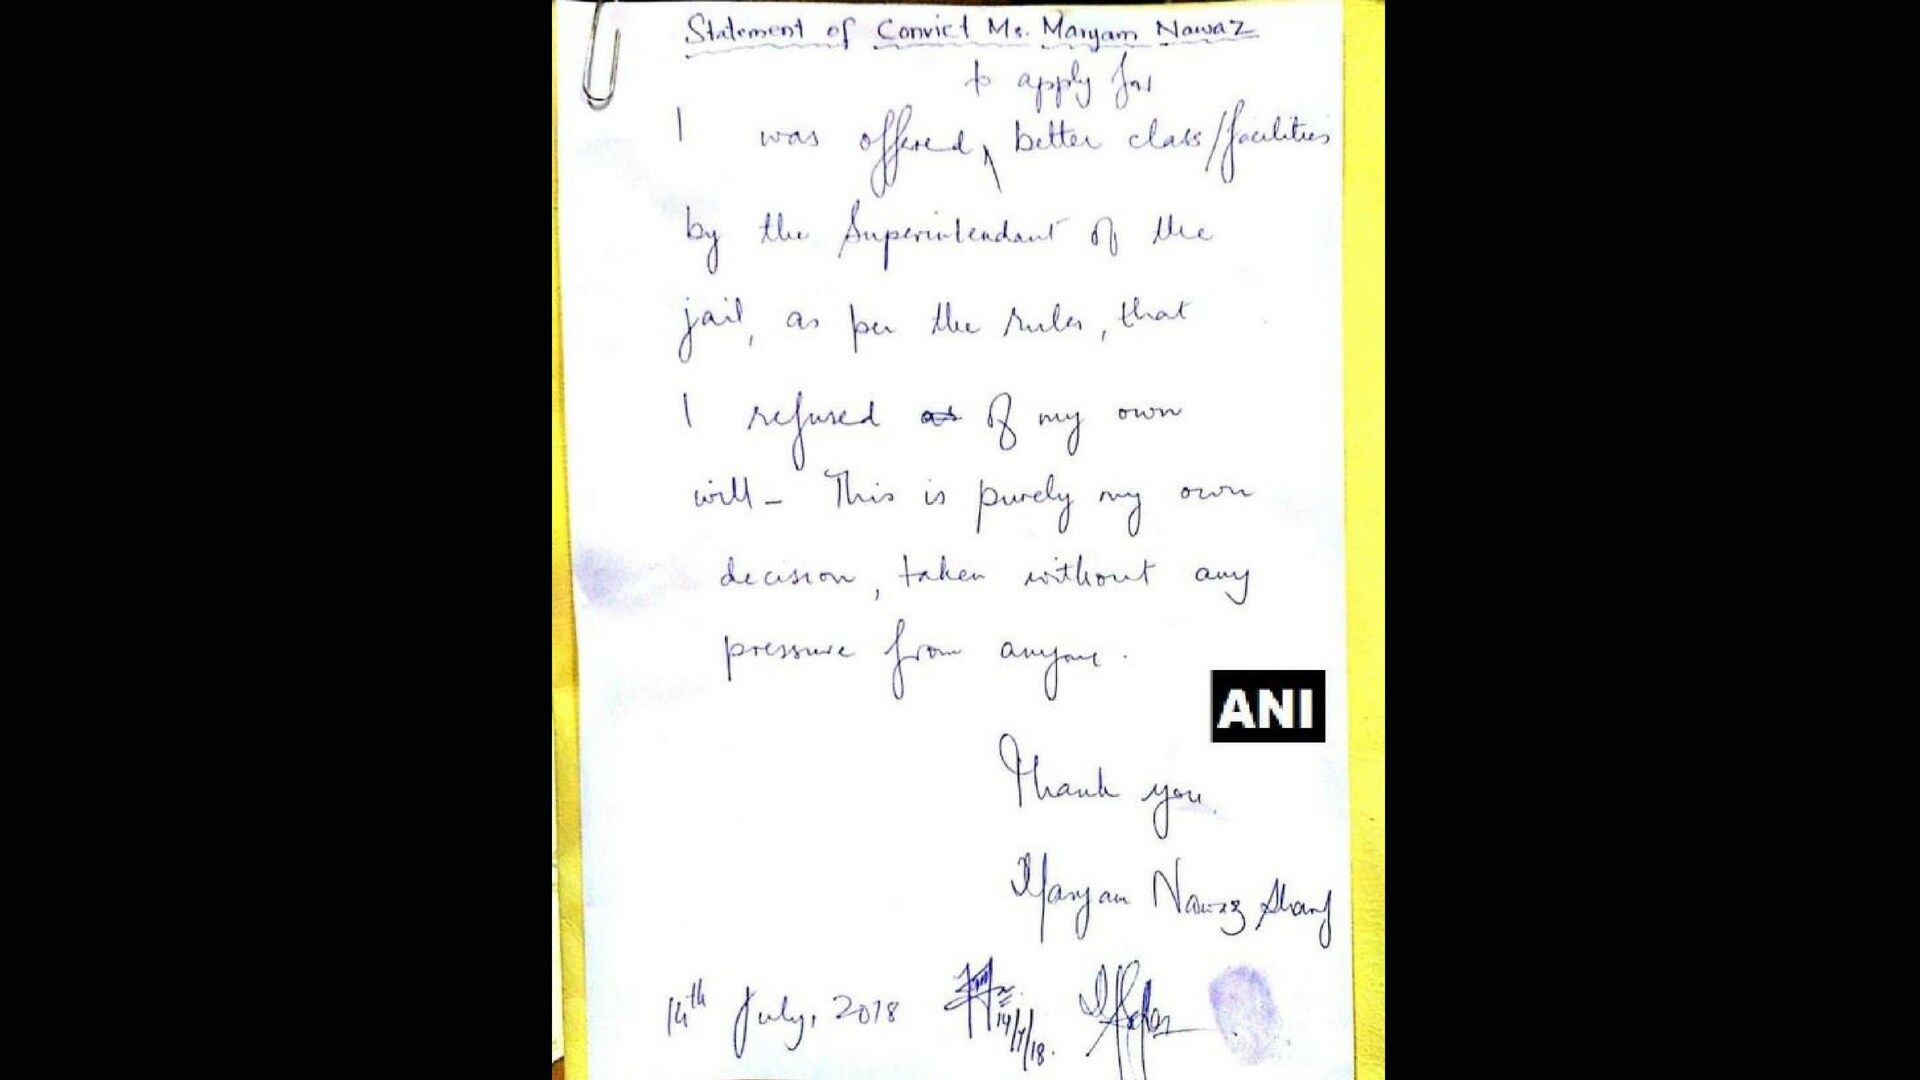 Statement of Convict Ms. Maryam Nawaz
to apply for
I was offered, better class/facilities
by the Superintendant of the
jail, as per the rules, that
I refused as of my own
will - This is purely my own
decision, taken without any
pressure from anyone.
ANI
Thank you.
Maryam Nawaz Sharif
14th July, 2018
14/7/18.